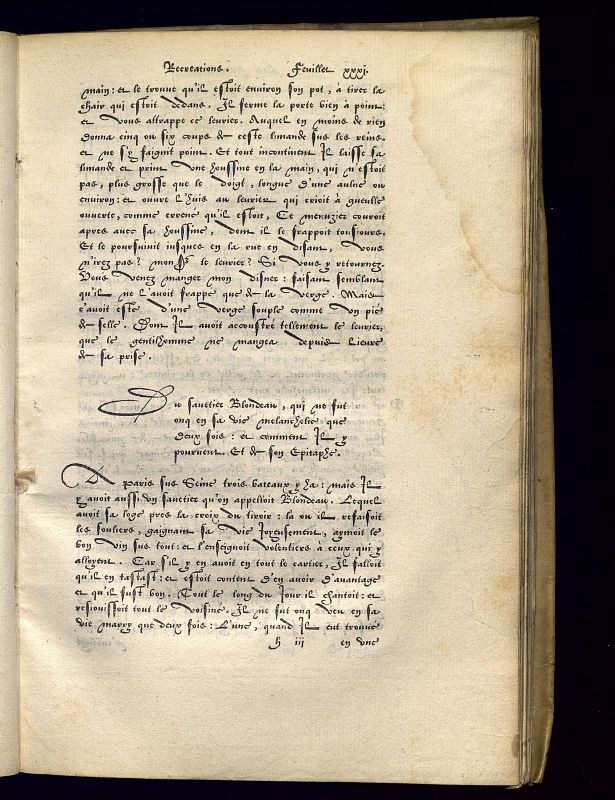 Recreations. Feuillet xxxi.
main: et le trouve qu'il estoit environ son pot, à tirer la
chair qui estoit dedans. Il ferme la porte bien à point:
et vous attrappe ce leurier. Auquel en moins de rien
donna cinq ou six coups de ceste limande sus les reins
et ne s'y faignit point. Et tout incontinent Il laisse sa
limande et print une houssine en la main, qui n'estoit
pas, plus grosse que le doigt, longue d'une aulne ou
environ: et ouvre l'huis au leurier qui crioit à gueulle
ouverte, comme errené qu'il estoit, Ce menuzier couroit
apres avec sa houssine, dont il le frappoit tousjours,
Et le poursuivit iusques en la rue en disant, vous
n'irez pas? le leurier? Si vous y retournez.
Vous venez manger mon disner: faisant semblant
qu'il ne l'avoit frappé que de la verge. Mais
c'avoit esté d'une verge souple comme un pié
de selle. Dont Il avoit accoustré tellement le leurier,
que le gentilhomme ne mangea depuis Lieure
de sa prise.
Du savetier Blondeau, qui ne fut
onq en sa vie melancholic que
deux fois: et comment Il y
pourveut. Et de son Epitaphe.
A Paris sus Seine trois bateaux y ha: mais Il
y avoit aussi un savetier qu'on appelloit Blondeau. Lequel
avoit sa loge pres la croix du tiroir: la ou il refaisoit
les souliers, gaignant sa vie Joyeusement, aymoit le
bon vin sus tout: et l'enseignoit volentiers à ceux qui y
alloyent. Car s'il y en avoit en tout le cartier, Il falloit
qu'il en tastast: et estoit content d'en avoir d'avantage
et qu'il fust bon. Tout le long du Jour il chantoit: et
resiouissoit tout le voisiné. Il ne fut onq veu en sa
vie marry que deux fois: L'une, quand Il eut trouvé
h iii en une